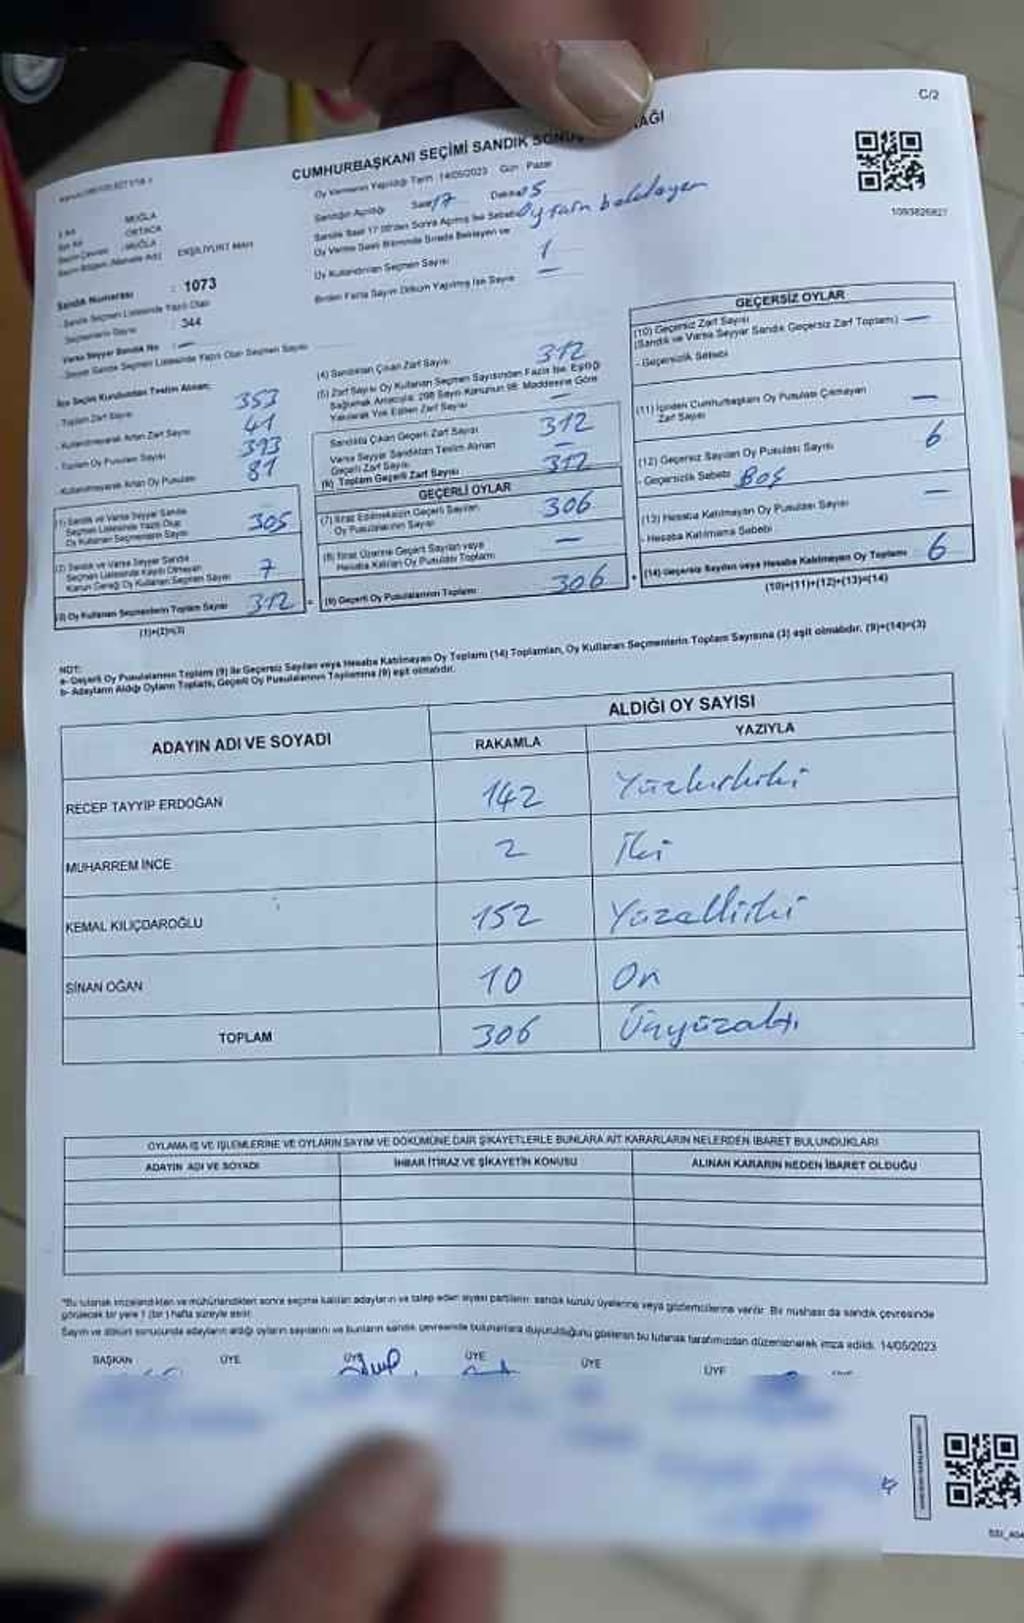 C/2
CUMHURBAŞKANI SEÇİMİ SANDIK SONUÇ
Oy Vermenin Yapıldığı Tarih 14/05/2023 Gün: Pazar
Sandığın Açıldığı Saat 17 Dakika 15
Sandık Saat 17.00'den Sonra Açılmış İse Sebebi Oy için bekleyen
Oy Verme Saati Bitiminde Sırada Bekleyen ve
Oy Kullandırılan Seçmen Sayısı 1
Birden Fazla Sayım Döküm Yapılmış İse Sayısı —
MUĞLA
ORTACA
MUĞLA
EKŞİLİYURT MAH
Sandık Numarası : 1073
Sandık Seçmen Listesinde Yazılı Olan
Seçmenlerin Sayısı : 344
Varsa Seyyar Sandık No : —
Seyyar Sandık Seçmen Listesinde Yazılı Olan Seçmen Sayısı
İlçe Seçim Kurulundan Teslim Alınan:
- Toplam Zarf Sayısı 353
- Kullanılmayarak Artan Zarf Sayısı 41
- Toplam Oy Pusulası Sayısı 393
- Kullanılmayarak Artan Oy Pusulası 81
(1) Sandık ve Varsa Seyyar Sandık
Seçmen Listesinde Yazılı Olup
Oy Kullanan Seçmenlerin Sayısı 305
(2) Sandık ve Varsa Seyyar Sandık
Seçmen Listesinde Kayıtlı Olmayan
Kanun Gereği Oy Kullanan Seçmen Sayısı 7
(3) Oy Kullanan Seçmenlerin Toplam Sayısı 312
(1)+(2)=(3)
(4) Sandıktan Çıkan Zarf Sayısı 312
(5) Zarf Sayısı Oy Kullanan Seçmen Sayısından Fazla İse, Eşitliği
Sağlamak Amacıyla; 298 Sayılı Kanunun 98. Maddesine Göre
Yakılarak Yok Edilen Zarf Sayısı —
Sandıkta Çıkan Geçerli Zarf Sayısı 312
Varsa Seyyar Sandıktan Teslim Alınan
Geçerli Zarf Sayısı —
(6) Toplam Geçerli Zarf Sayısı 312
GEÇERLİ OYLAR
(7) İtiraz Edilmeksizin Geçerli Sayılan
Oy Pusulalarının Sayısı 306
(8) İtiraz Üzerine Geçerli Sayılan veya
Hesaba Katılan Oy Pusulası Toplamı —
(9) Geçerli Oy Pusulalarının Toplamı 306
1093826827
GEÇERSİZ OYLAR
(10) Geçersiz Zarf Sayısı
(Sandık ve Varsa Seyyar Sandık Geçersiz Zarf Toplamı) —
- Geçersizlik Sebebi
(11) İçinden Cumhurbaşkanı Oy Pusulası Çıkmayan
Zarf Sayısı —
(12) Geçersiz Sayılan Oy Pusulası Sayısı 6
- Geçersizlik Sebebi BOŞ
(13) Hesaba Katılmayan Oy Pusulası Sayısı —
- Hesaba Katılmama Sebebi
(14) Geçersiz Sayılan veya Hesaba Katılmayan Oy Toplamı 6
(10)+(11)+(12)+(13)=(14)
NOT:
a- Geçerli Oy Pusulalarının Toplamı (9) ile Geçersiz Sayılan veya Hesaba Katılmayan Oy Toplamı (14) Toplamları, Oy Kullanan Seçmenlerin Toplam Sayısına (3) eşit olmalıdır. (9)+(14)=(3)
b- Adayların Aldığı Oyların Toplamı, Geçerli Oy Pusulalarının Toplamına (9) eşit olmalıdır.
ADAYIN ADI VE SOYADI
ALDIĞI OY SAYISI
RAKAMLA YAZIYLA
RECEP TAYYİP ERDOĞAN 142 Yüzkırkiki
MUHARREM İNCE 2 İki
KEMAL KILIÇDAROĞLU 152 Yüzelliiki
SİNAN OĞAN 10 On
TOPLAM 306 Üçyüzaltı
OYLAMA İŞ VE İŞLEMLERİNE VE OYLARIN SAYIM VE DÖKÜMÜNE DAİR ŞİKAYETLERLE BUNLARA AİT KARARLARIN NELERDEN İBARET BULUNDUKLARI
ADAYIN ADI VE SOYADI İHBAR İTİRAZ VE ŞİKAYETİN KONUSU ALINAN KARARIN NEDEN İBARET OLDUĞU
*Bu tutanak imzalandıktan ve mühürlendikten sonra seçime katılan adayların ve talep eden siyasi partilerin sandık kurulu üyelerine veya gözlemcilerine verilir. Bir nüshası da sandık çevresinde
görülecek bir yere 1 (bir) hafta süreyle asılır.
Sayım ve döküm sonucunda adayların aldığı oyların sayılarını ve bunların sandık çevresinde bulunanlara duyurulduğunu gösteren bu tutanak tarafımızdan düzenlenerek imza edildi. 14/05/2023
BAŞKAN ÜYE ÜYE ÜYE ÜYE ÜYE